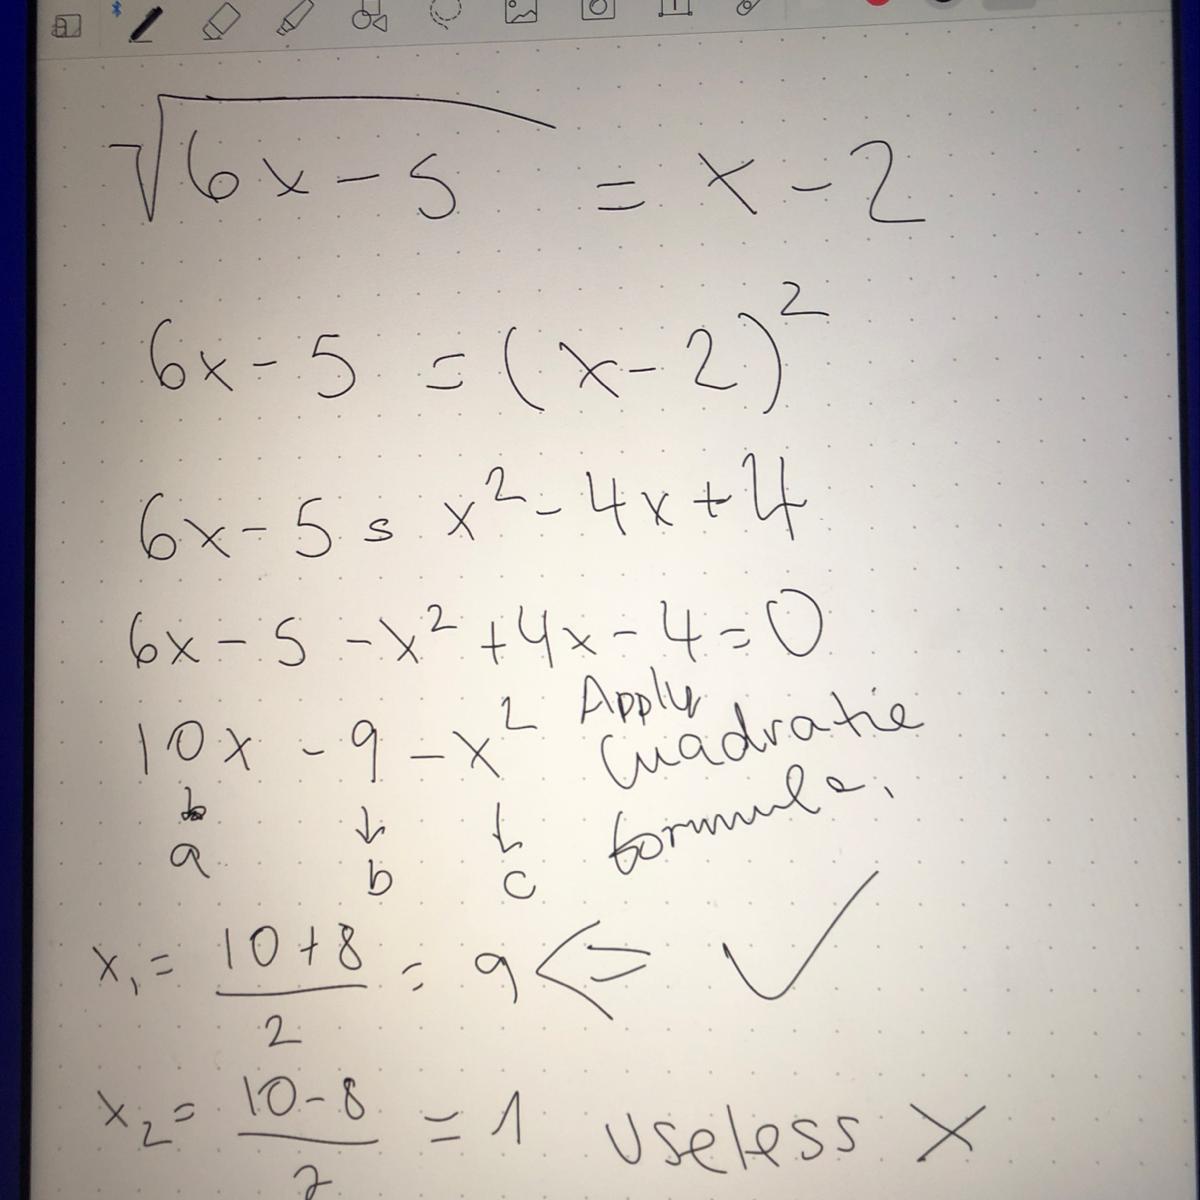 √6x - 5 = x - 2
6x - 5 = (x - 2)²
6x - 5 = x² - 4x + 4
6x - 5 - x² + 4x - 4 = 0
10x - 9 - x² Apply
Cuadratic
formula.
a b c
x₁ = 10 + 8 / 2 = 9 <= ✓
x₂ = 10 - 8 / 2 = 1 useless X